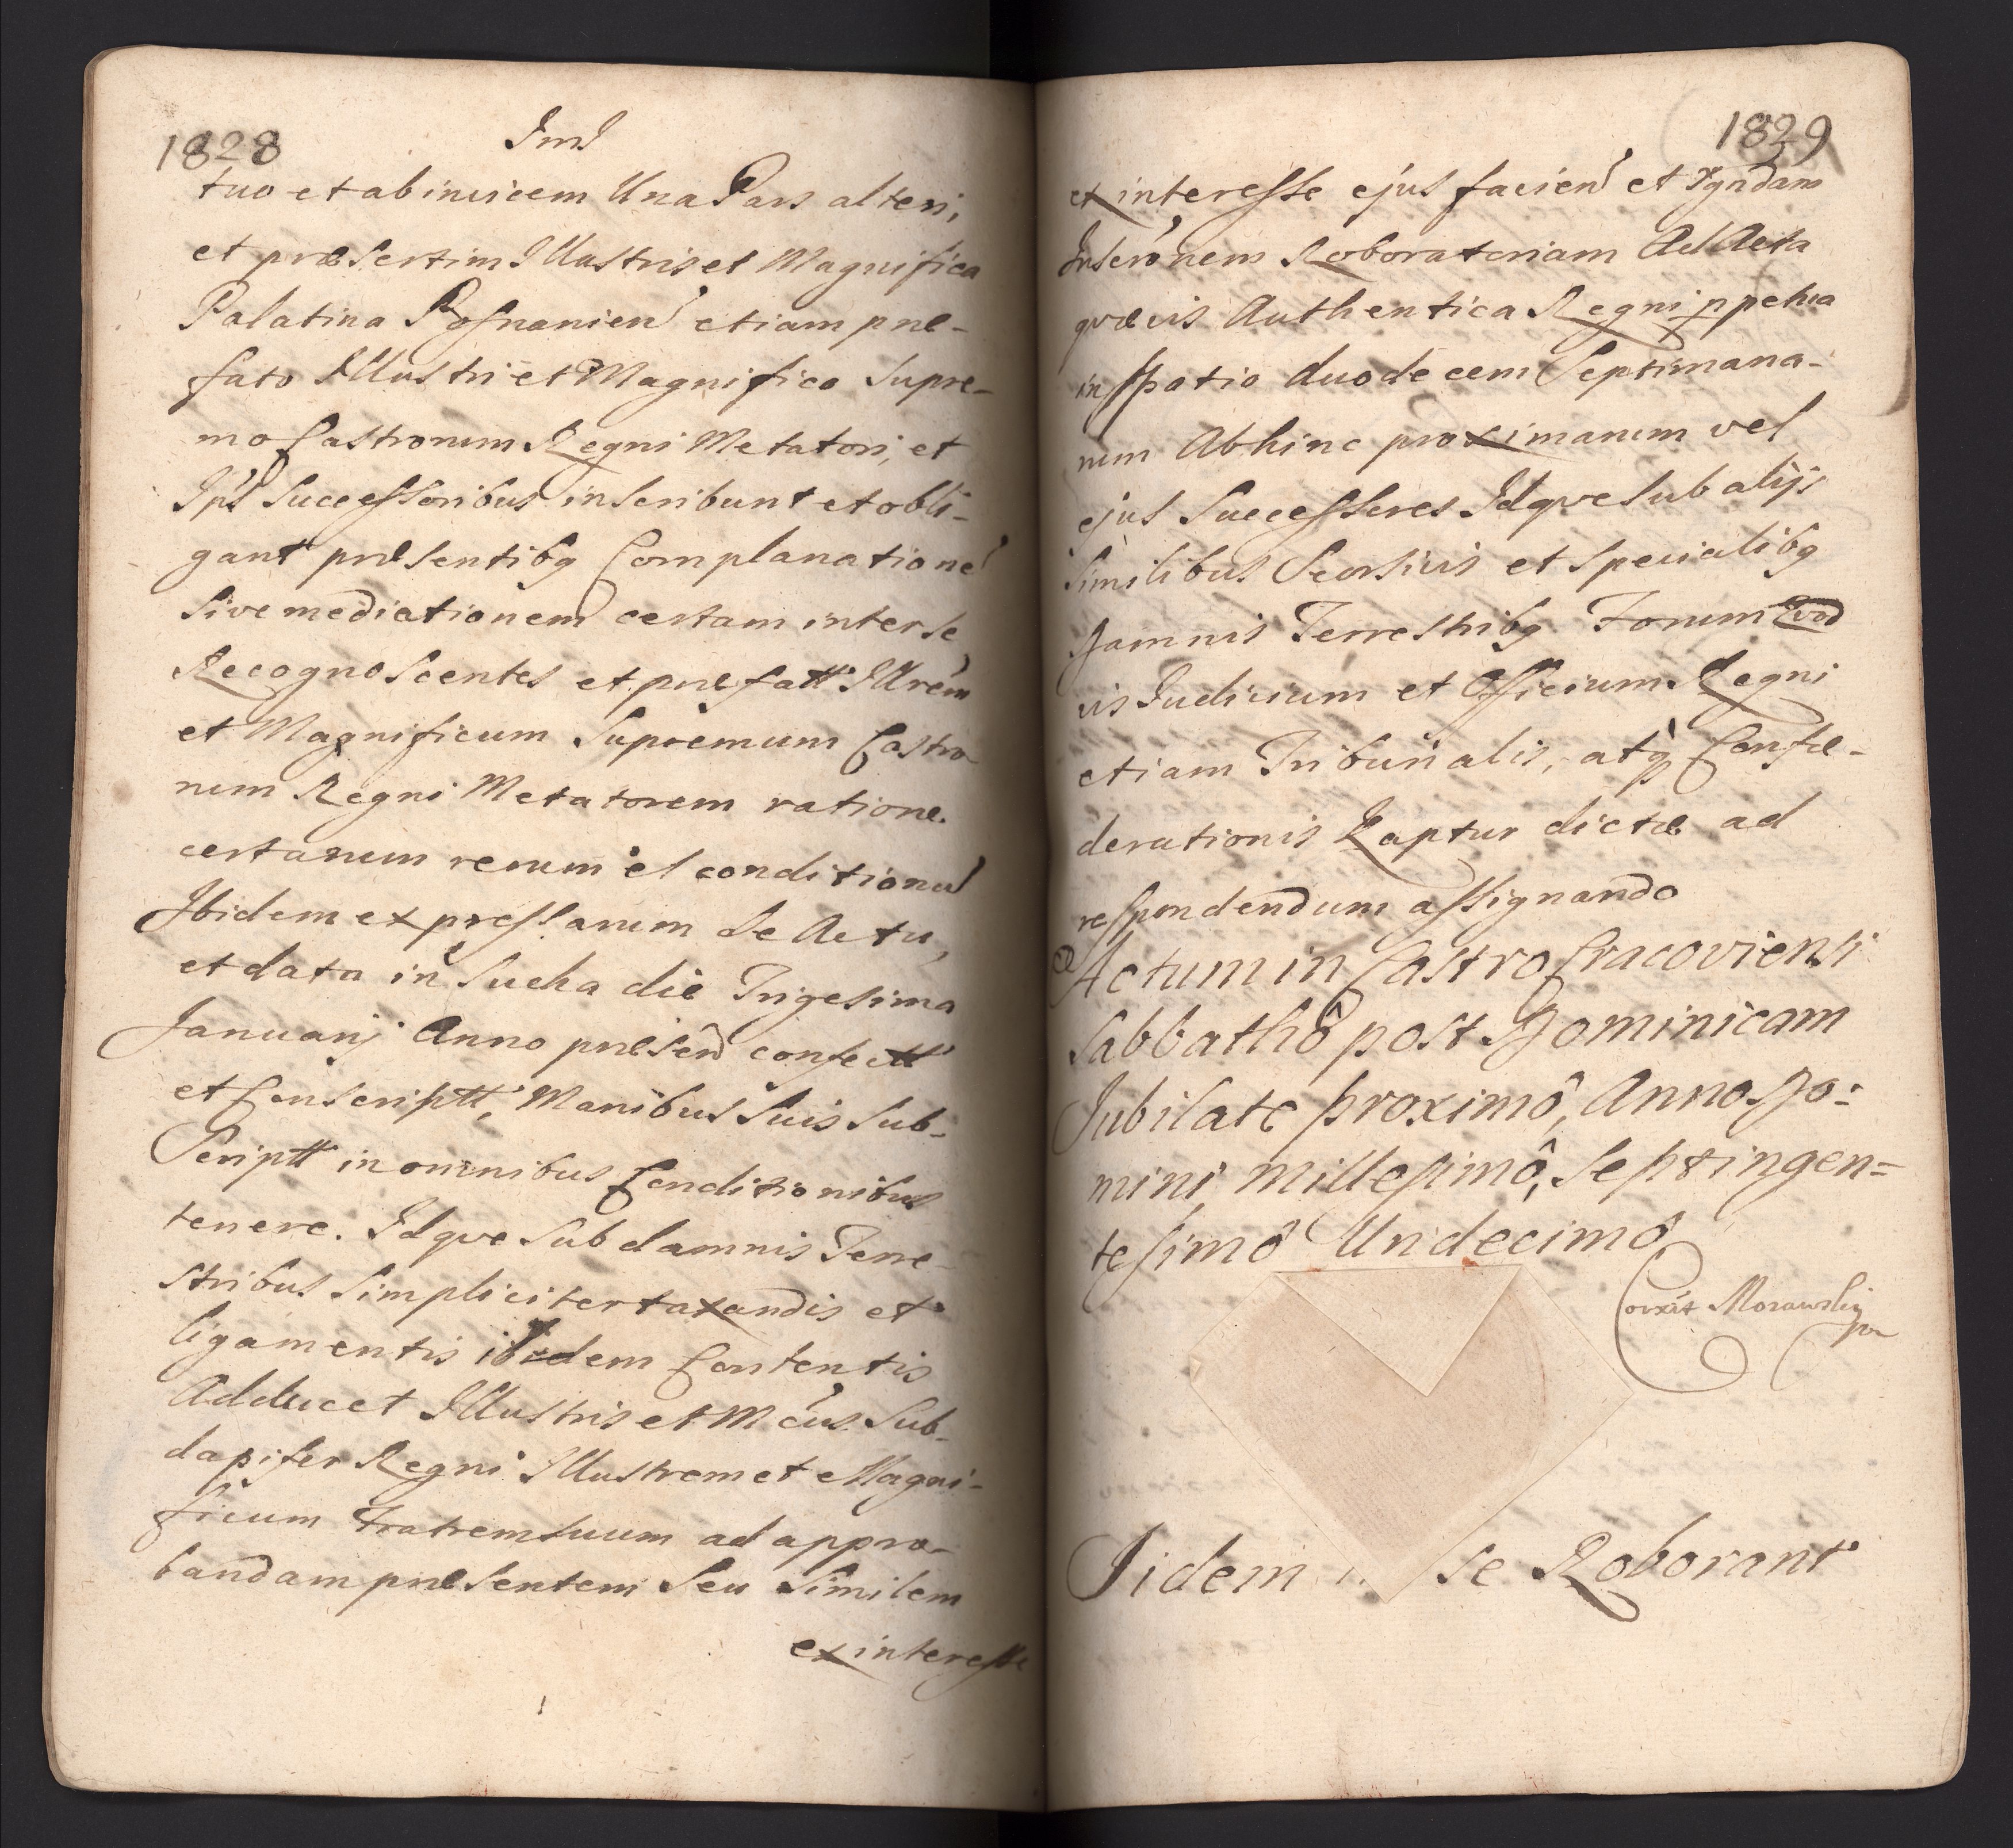 1828
Iml
tuo et abinvicem Una Pars alteri,
et præsertim Illustris et Magnifica
Palatina Posnanien etiam præ-
fato Illustri et Magnifico Supre-
mo Castrorum Regni Metatori, et
Ips Successoribus inscribunt et obli-
gant præsentibq Complanatione
sive mediationem certam inter se
Recognoscentes et præfatt Illrem
et Magnificum Supremum Castro
rum Regni Metatorem ratione
certarum rerum et conditionu
Ibidem expressarum de Actu,
et data in Sucha die Trigesima
Januarij Anno præsen confectt
et Conscriptt, Manibus suis sub-
scriptt in omnibus Conditionibus
tenere. Idqve sub damnis Terre-
stribus simpliciter taxandis et
ligamentis ibidem Contentis
Adducet Illustris et Mcus Sub-
dapifer Regni Illustrem et Magni-
ficum Fratrem suum ad appro-
bandam præsentem seu similem
ex interesse
1829
ex interesse ejus facien et
Inseronem Roboratoriam Ad Acta
qvævis Authentica Regni ppetua
in spatio duodecem Septimana-
rum Abhinc proximarum vel
ejus Successeres Idqve sub alijs
similibus Seorsivis et specialibq
Damnis Terrestribq Forum Qvod
vis Iudicium et Officium Regni
etiam Tribunalis, atq Confæ-
derationis Kaptur dictæ ad
respondendum assignando
Actum in Castro Cracoviensi
Sabbathô post Dominicam
Jubilate proximô, Anno Do=
mini, Millesimô, Septingen=
tesimô Undecimô
Corxit Morawskÿ
Iidem se Roborant